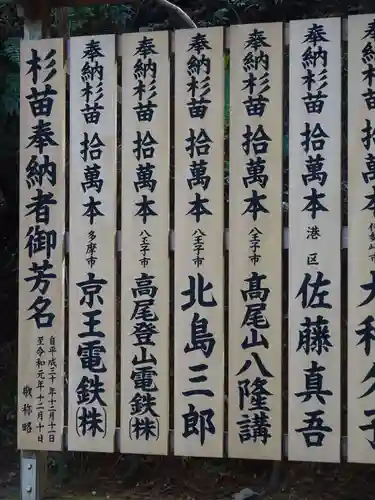 杉苗奉納者御芳名
自平成三十年十二月十一日
至令和元年十二月十日
敬称略
奉納杉苗 拾萬本 多摩市 京王電鉄(株)
奉納杉苗 拾萬本 八王子市 高尾登山電鉄(株)
奉納杉苗 拾萬本 八王子市 北島三郎
奉納杉苗 拾萬本 八王子市 高尾山八隆講
奉納杉苗 拾萬本 港区 佐藤真吾
奉納杉苗 拾萬本 大和久子